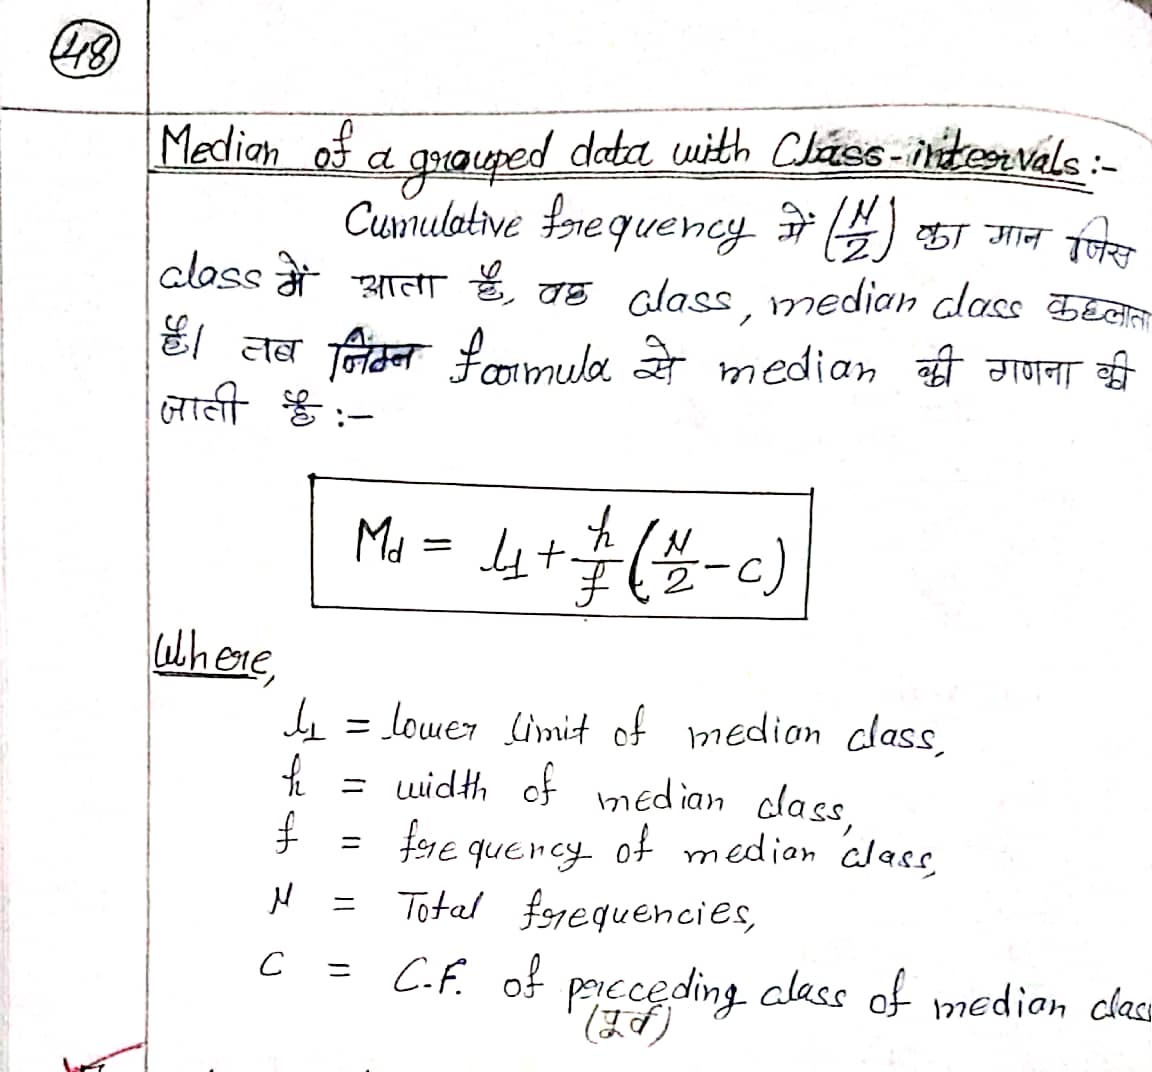 48
Median of a grouped data with Class-intervals :-
Cumulative frequency में (N/2) का मान जिस
class में आता है, वह class, median class कहलाता
है। तब निम्न formula से median की गणना की
जाती है :-
Md = l₁ + h/f (N/2 - c)
Where,
l₁ = lower limit of median class,
h = width of median class,
f = frequency of median class,
N = Total frequencies,
C = C.F. of preceding class of median class
(पूर्व)